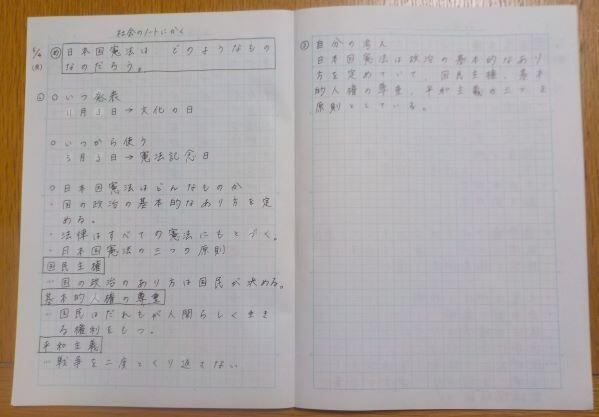 社会のノートにかく
5/6
(月)
め 日本国憲法は、どのようなもの
なのだろう。
○いつ発表
11月3日→文化の日
○いつから使う
5月3日→憲法記念日
○日本国憲法はどんなものか
・国の政治の基本的なあり方を定
める。
・法律はすべての憲法にもとづく。
・日本国憲法の三つの原則
国民主権
…国の政治のあり方は国民が決める。
基本的人権の尊重
…国民はだれもが人間らしく生き
る権利をもつ。
平和主義
…戦争を二度とくり返さない
自分の考え
日本国憲法は政治の基本的なあり
方を定めていて、国民主権、基本
的人権の尊重、平和主義の三つを
原則としている。